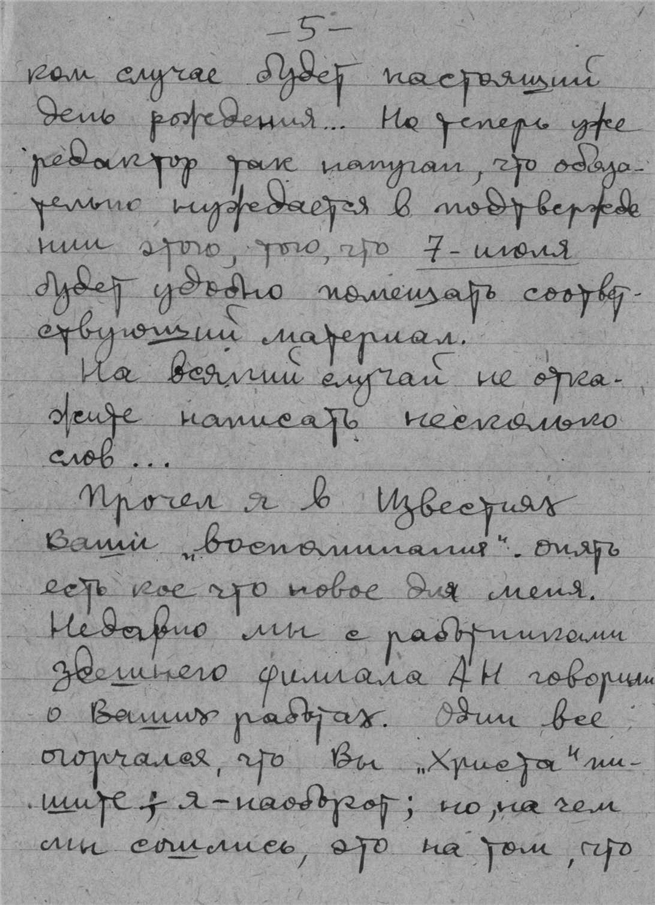 -5-
ком случае будет настоящий
день рождения... Но теперь уже
редактор так напуган, что обяза-
тельно нуждается в подтвержде
нии этого, того, что 7-июля
будет удобно помещать соответ-
ствующий материал.
На всякий случай не отка-
жите написать несколько
слов...
Прочел я в Известиях
Ваши „воспоминания“. Опять
есть кое что новое для меня.
Недавно мы с работниками
здешнего филиала АН говорили
о Ваших работах. Один все
огорчался, что Вы „Христа“ пи-
шите; я - наоборот; но, на чем
мы сошлись, это на том, что